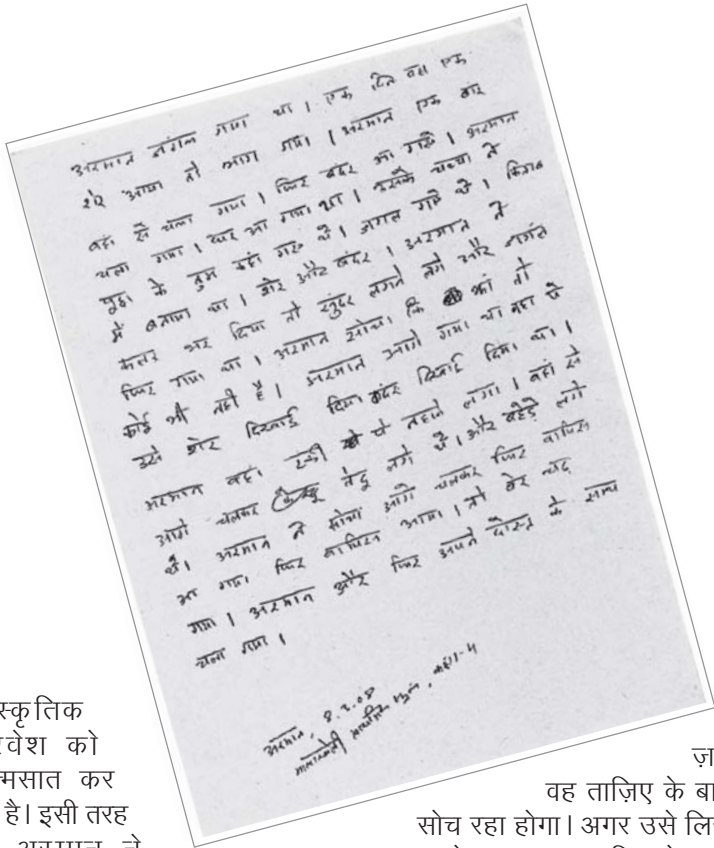 अरमान जंगल गया था। एक दिन वहा एक
शेर आया तो भाग गया। अरमान एक बार
वहां से चला गया। फिर बंदर आ गए। अरमान
चला गया। घर आ गया था। उसके चाचा ने
पूछा के तुम कहां गए थे। जंगल गए थे।
में बताया था। शेर और बंदर। अरमान ने
कलर भर दिया तो सुंदर लगने लगे और जगंल
फिर गया था। अरमान सोचा कि तो
कोई भी नहीं है। अरमान आगे गया था वहा पे
उसे शेर दिखाई दिया बंदर दिखाई दिया था।
अरमान वहा पे नहाने लगा। वहां से
आगे चलकर तेदू लगे थे। और बहेड़े लगे
थे। अरमान ने सोचा आगे चलकर फिर वापिस
आ गया। फिर वापिस आया। तो शेर
गया। अरमान और फिर अपने दोस्त के साथ
चला गया।
अरमान, 8.2.08
कक्षा-4
स्कृतिक
रवेश को
मसात कर
है। इसी तरह
अरमान ने
ज़
वह ताज़िए के बा
सोच रहा होगा। अगर उसे लि